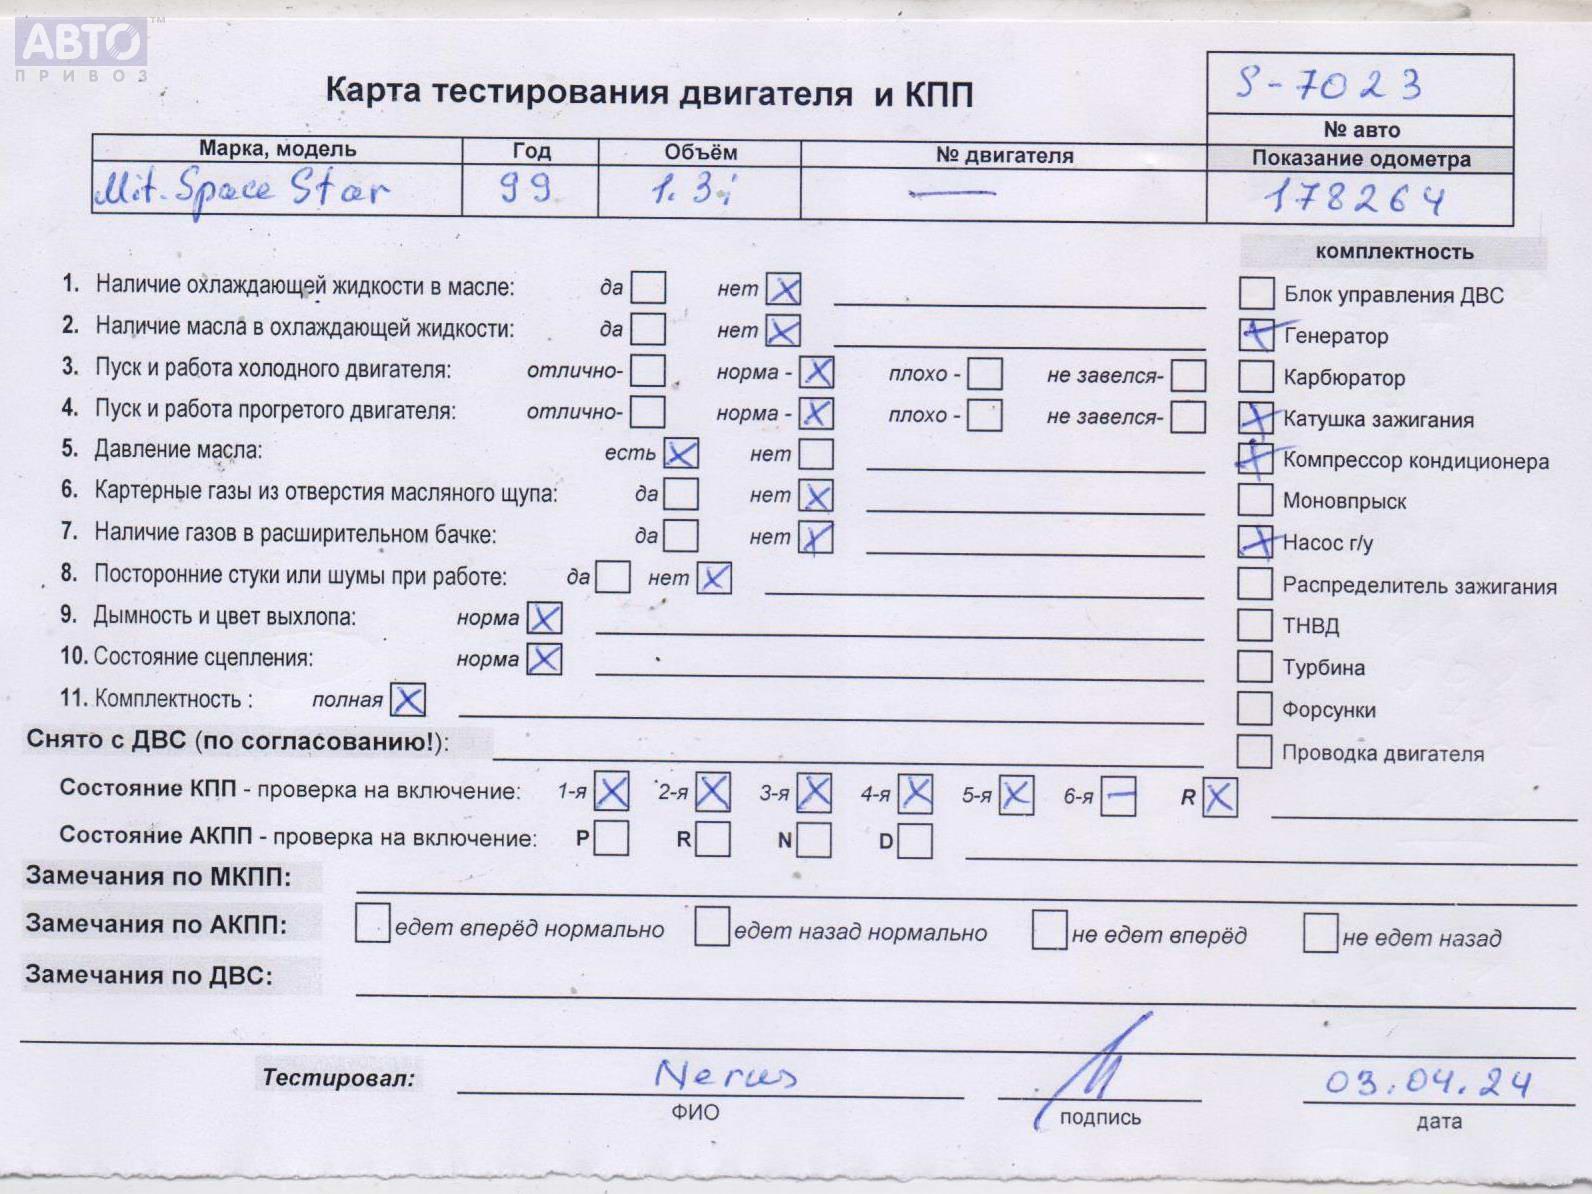 АВТО ™
ПРИВОЗ
Карта тестирования двигателя и КПП
S-7023
№ авто
Марка, модель Год Объём № двигателя Показание одометра
Mit. Space Star 99 1.3i — 178264
комплектность
1. Наличие охлаждающей жидкости в масле: да нет X
Блок управления ДВС
2. Наличие масла в охлаждающей жидкости: да нет X
X Генератор
3. Пуск и работа холодного двигателя: отлично- норма - X плохо - не завелся-
Карбюратор
4. Пуск и работа прогретого двигателя: отлично- норма - X плохо - не завелся-
X Катушка зажигания
5. Давление масла: есть X нет
X Компрессор кондиционера
6. Картерные газы из отверстия масляного щупа: да нет X
Моновпрыск
7. Наличие газов в расширительном бачке: да нет X
X Насос г/у
8. Посторонние стуки или шумы при работе: да нет X
Распределитель зажигания
9. Дымность и цвет выхлопа: норма X
ТНВД
10. Состояние сцепления: норма X
Турбина
11. Комплектность : полная X
Форсунки
Снято с ДВС (по согласованию!):
Проводка двигателя
Состояние КПП - проверка на включение: 1-я X 2-я X 3-я X 4-я X 5-я X 6-я — R X
Состояние АКПП - проверка на включение: P R N D
Замечания по МКПП:
Замечания по АКПП: едет вперёд нормально едет назад нормально не едет вперёд не едет назад
Замечания по ДВС:
Тестировал: Nerus 03.04.24
ФИО подпись дата